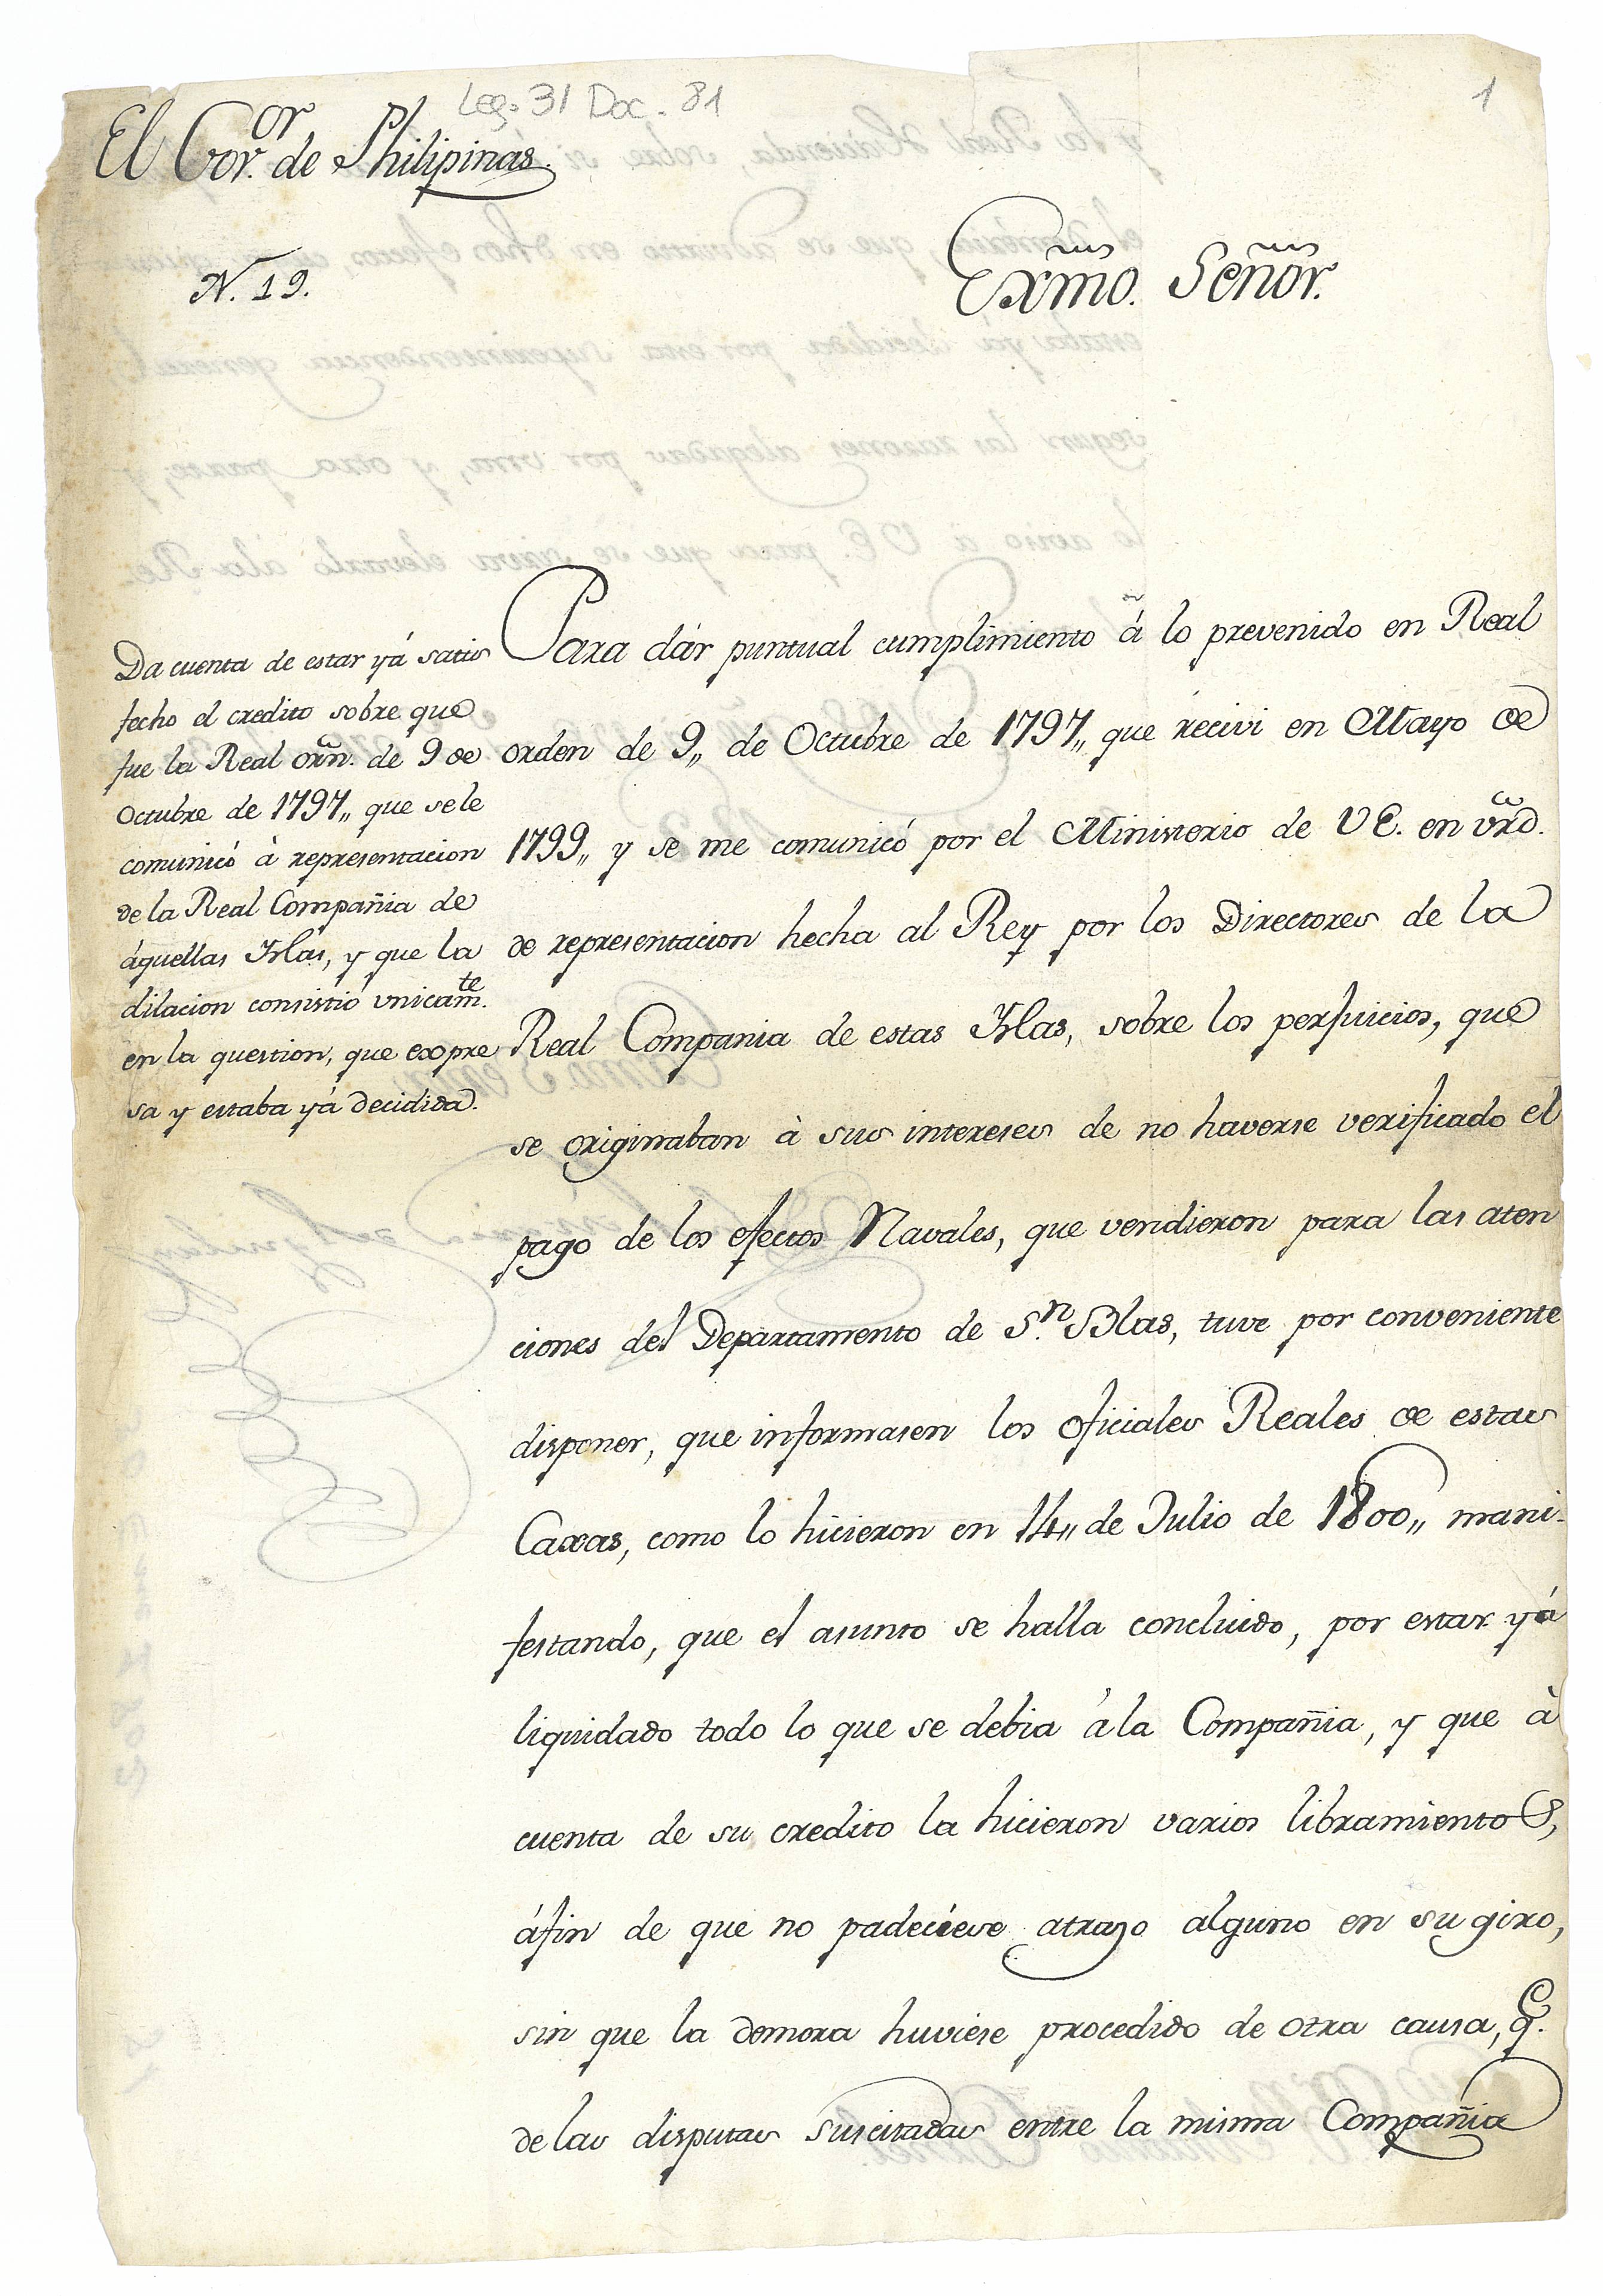 Leg. 31 Doc. 81
1
El Gov.or de Philipinas.
N. 19.
Exmo. Señor.
Da cuenta de estar yá satis
fecho el credito sobre que
fue la Real orn. de 9 de
Octubre de 1797,, que se le
comunicó à representacion
de la Real Compañia de
áquellas Yslas, y que la
dilacion consistió unicam.te
en la question, que expre
sa y estaba yá decidida.
Para dár puntual cumplimiento á lo prevenido en Real
orden de 9,, de Octubre de 1797,, que récivi en Mayo de
1799,, y se me comunicó por el Ministerio de V E. en vrd.
de representacion hecha al Rey por los Directores de la
Real Compania de estas Yslas, sobre los perjuicios, que
se originaban à sus intereses de no haverse verificado el
pago de los efectos Navales, que vendieron para las aten
ciones del Departamento de S.n Blas, tuve por conveniente
disponer, que informasen los Oficiales Reales de estas
Caxas, como lo hicieron en 14,, de Julio de 1800,, mani-
festando, que el asunto se halla concluido, por estar yá
liquidado todo lo que se debia á la Compañia, y que à
cuenta de su credito la hicieron varios libramientos,
áfin de que no padeciese atrazo alguno en su giro,
sin que la demora huviese procedido de otra causa, q.
de las disputas suscitadas entre la misma Compañia